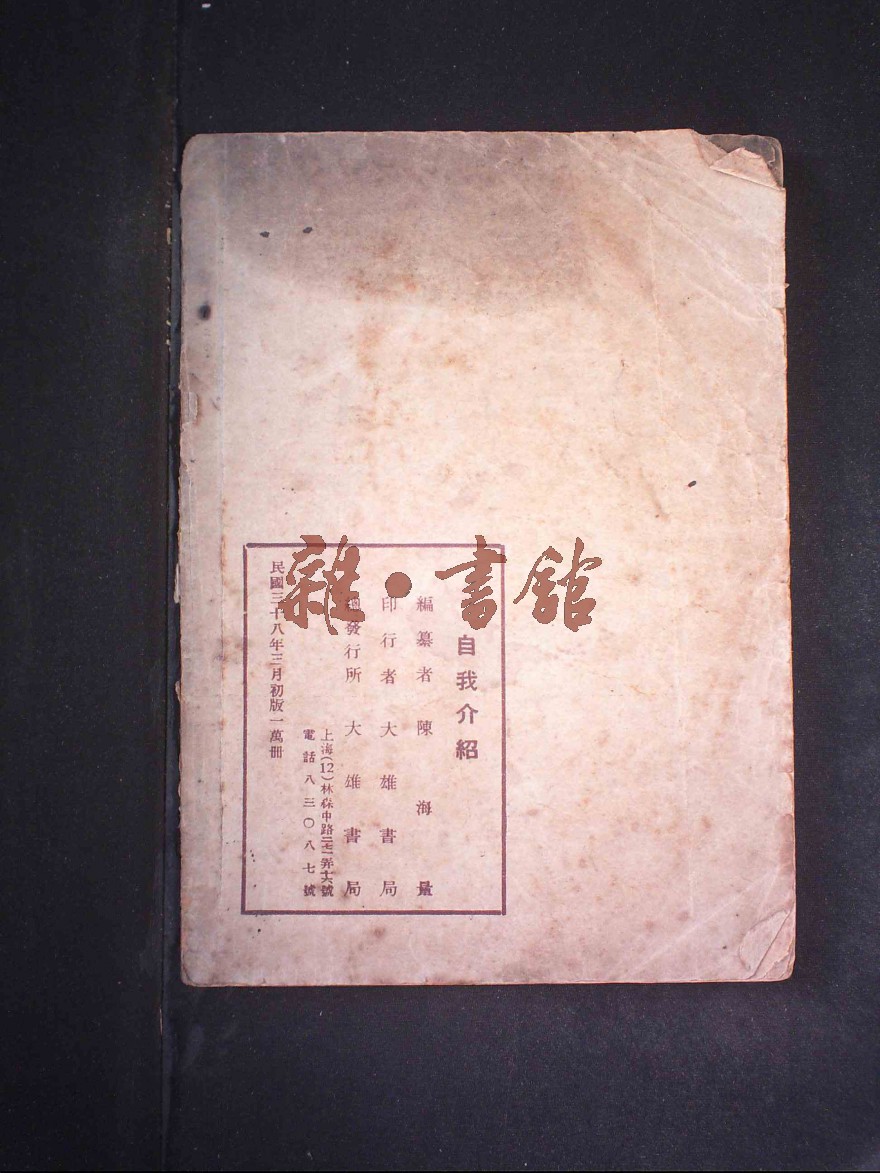 雜·書館
自我介紹
編纂者 陳海量
印行者 大雄書局
總發行所 大雄書局
上海(12)林森中路弄十六號
電話八三〇八七號
民國三十八年三月初版一萬冊